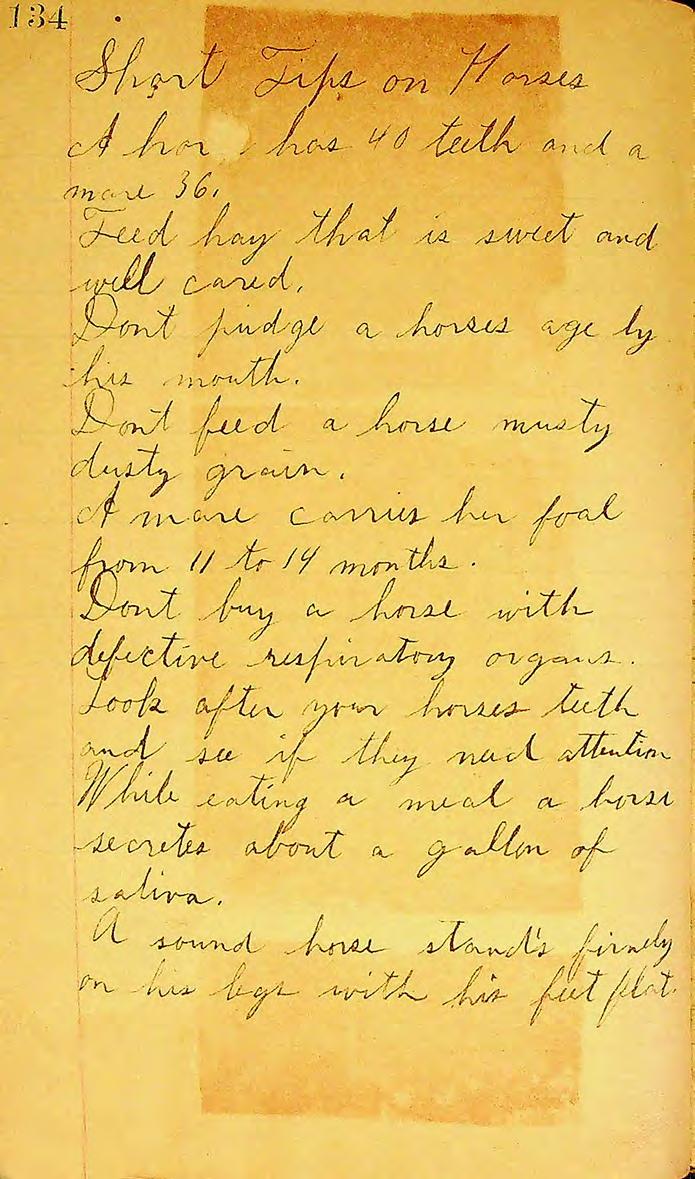 134
Short Tips on Horses
A hor has 40 teeth and a
mare 36.
Feed hay that is sweet and
well cared.
Dont judge a horses age by
his mouth.
Dont feed a horse musty
dusty grain.
A mare carries her foal
from 11 to 14 months.
Dont buy a horse with
defective respiratory organs.
Look after your horses teeth
and see if they need attention
While eating a meal a horse
secretes about a gallon of
saliva.
A sound horse stand's firmely
on his legs with his feet flat.